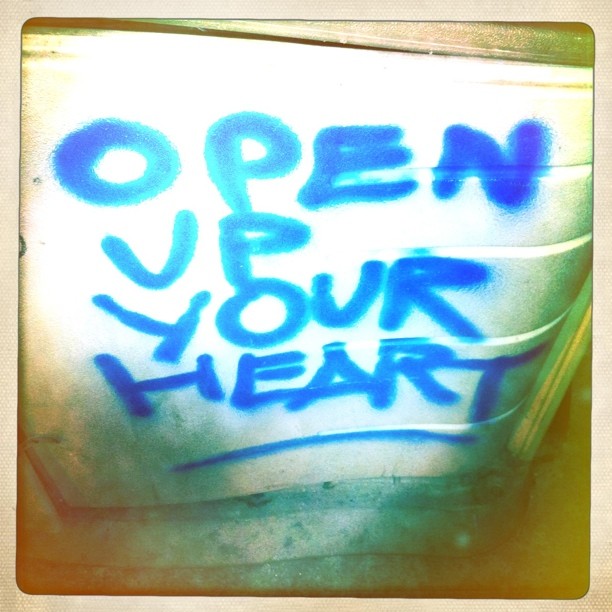 OPEN
UP
YOUR
HEART